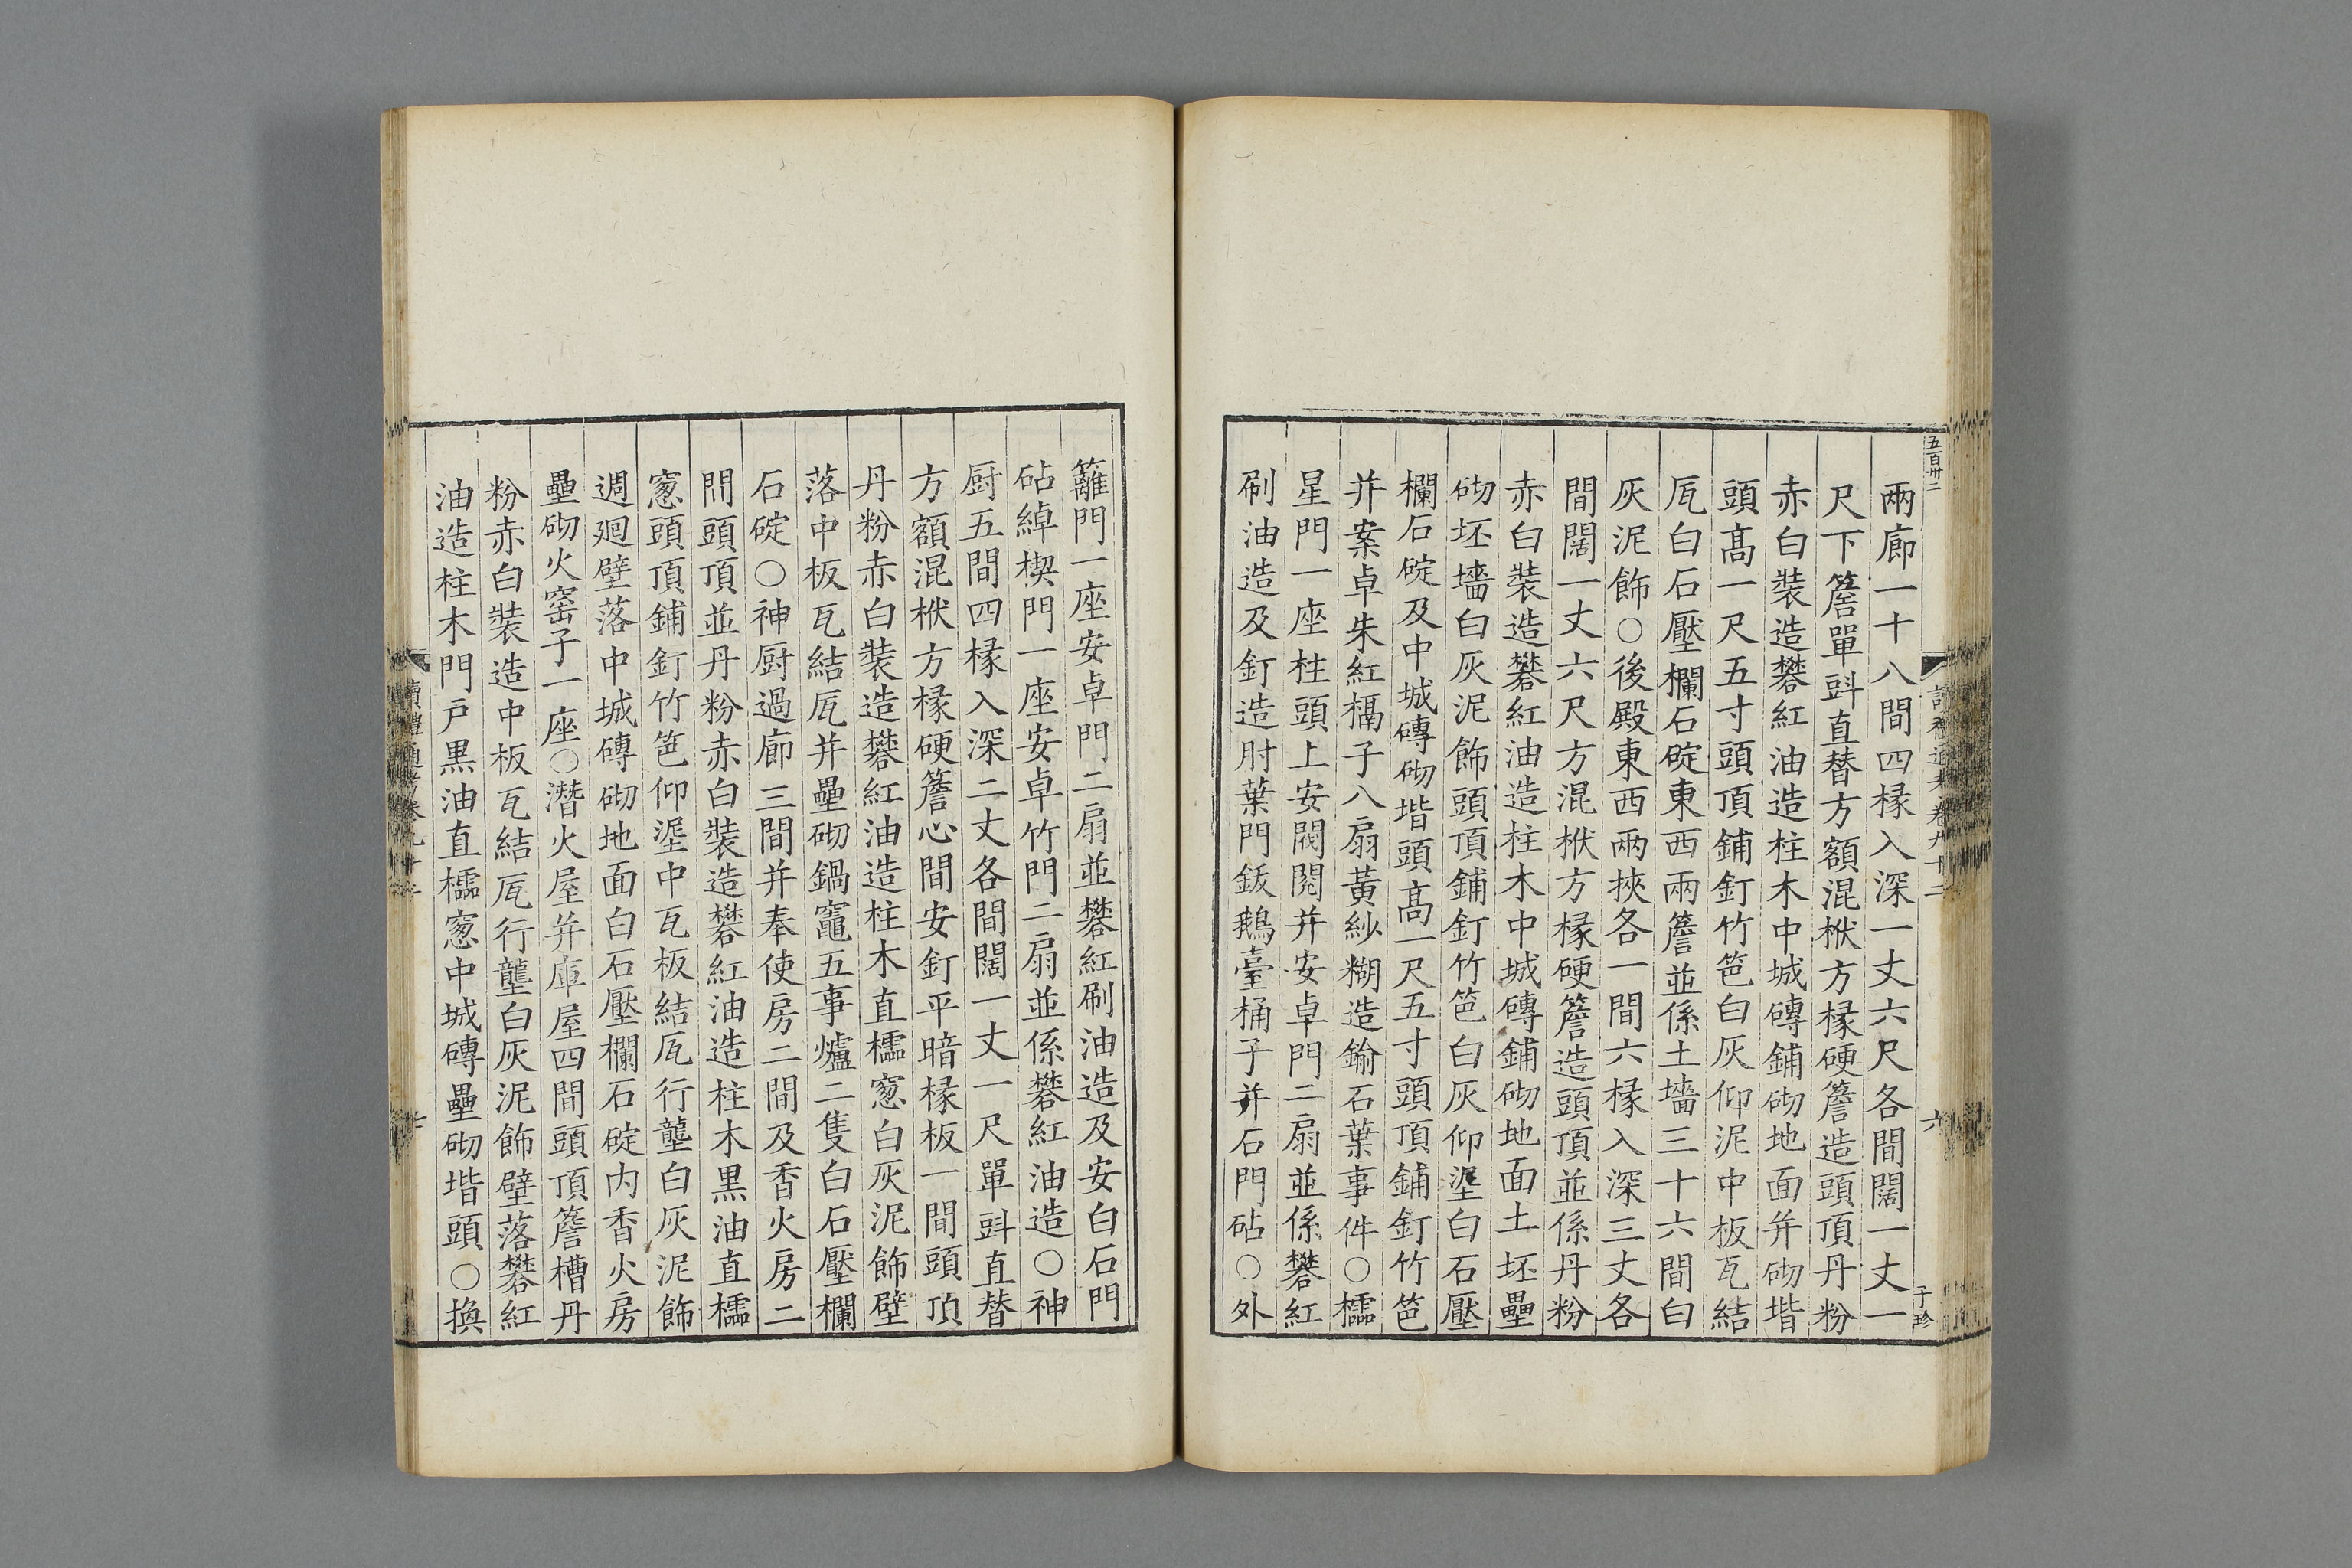 五百卅二
讀禮通考卷九十二
六
子珍
兩廊一十八間四椽入深一丈六尺各間闊一丈一
尺下簷單㪷直替方額混栿方椽硬簷造頭頂丹粉
赤白裝造礬紅油造柱木中城磚鋪砌地面并砌堦
頭髙一尺五寸頭頂鋪釘竹笆白灰仰泥中板瓦結
瓦白石壓欄石碇東西兩簷並係土墻三十六間白
灰泥飾○後殿東西兩挾各一間六椽入深三丈各
間闊一丈六尺方混栿方椽硬簷造頭頂並係丹粉
赤白裝造礬紅油造柱木中城磚鋪砌地面土坯壘
砌坯墻白灰泥飾頭頂鋪釘竹笆白灰仰埿白石壓
欄石碇及中城磚砌堦頭髙一尺五寸頭頂鋪釘竹笆
并案卓朱紅槅子八扇黃紗糊造鍮石葉事件○櫺
星門一座柱頭上安閥閱并安卓門二扇並係礬紅
刷油造及釘造肘葉門鈸鵝臺桶子并石門砧○外
籬門一座安卓門二扇並礬紅刷油造及安白石門
砧綽楔門一座安卓竹門二扇並係礬紅油造○神
厨五間四椽入深二丈各間闊一丈一尺單㪷直替
方額混栿方椽硬簷心間安釘平暗椽板一間頭頂
丹粉赤白裝造礬紅油造柱木直櫺窻白灰泥飾壁
落中板瓦結瓦并壘砌鍋竈五事爐二隻白石壓欄
石碇○神厨過廊三間并奉使房二間及香火房二
間頭頂並丹粉赤白裝造礬紅油造柱木黒油直櫺
窻頭頂鋪釘竹笆仰埿中瓦板結瓦行壟白灰泥飾
週廻壁落中城磚砌地面白石壓欄石碇内香火房
壘砌火窰子一座○潛火屋并庫屋四間頭頂簷槽丹
粉赤白裝造中板瓦結瓦行壟白灰泥飾壁落礬紅
油造柱木門戸黒油直櫺窻中城磚壘砌堦頭○換
讀禮通考卷九十二